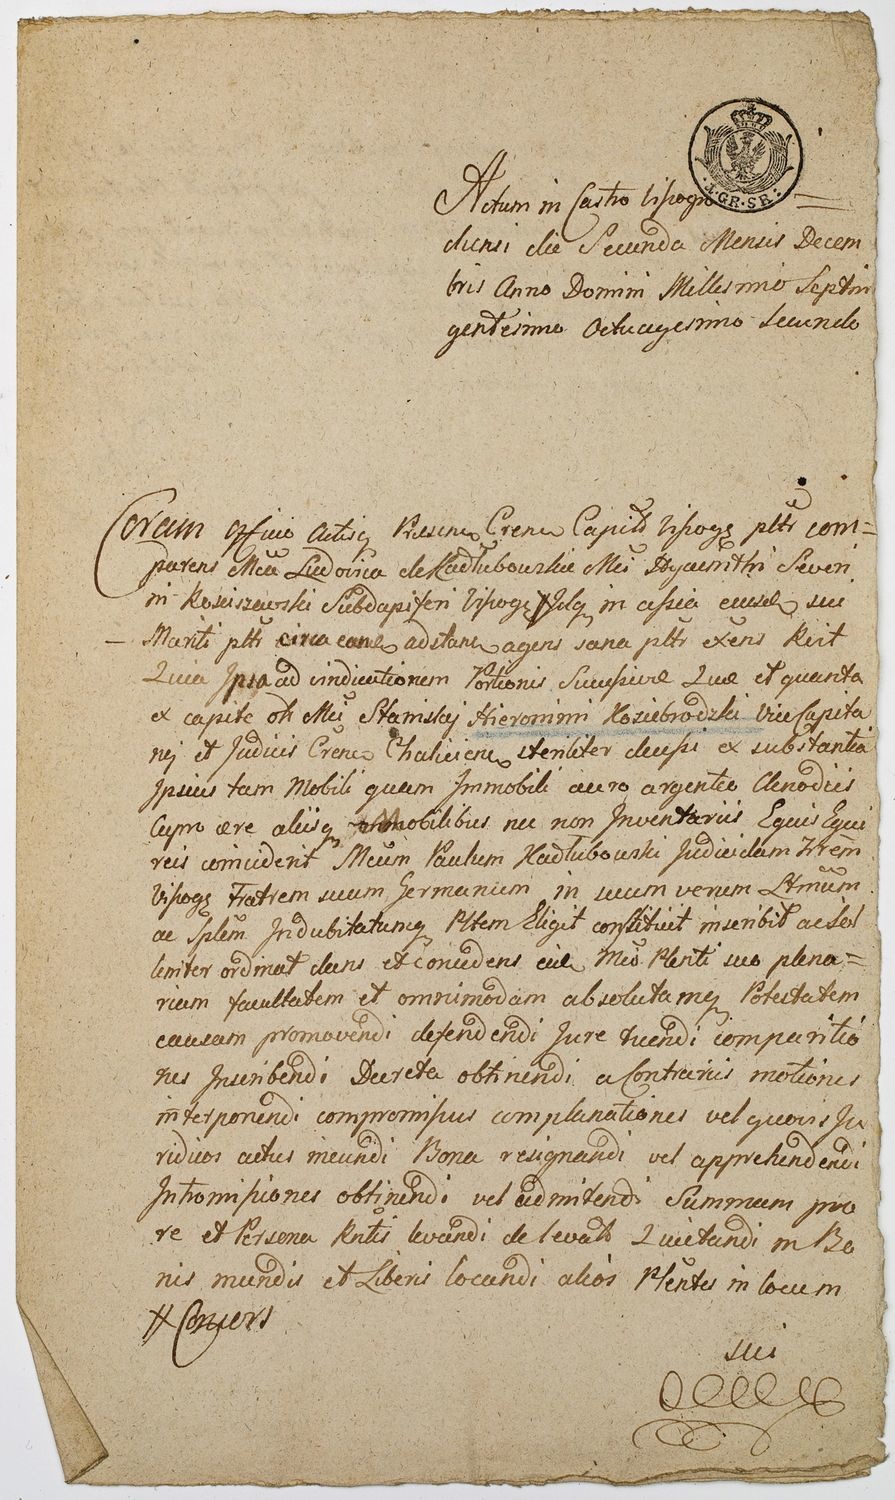 1. GR. SR:
Actum in Castro Vissogro =
diensi die Secunda Mensis Decem
bris Anno Domini Millesimo Septin
gentesimo Octuagesimo Secundo
Coram officio Actisq Capit Vissogg pltr com=
parens Ludovica de Kadłubowskie Hyacinthi Severi
ni Kosciszewski Subdapiferi Vissogg in assia sui
Mariti pltr circa adstan agens sana pltr exens
Quia Ipsa ad vindicationem Portionis Successivæ Quæ et quanta
ex capite olt Stanislaj Hieronimi Koziebrodzki ViceCapita
nej et Judicis Crenen Chalicien steriliter decessi ex substantia
Ipsius tam Mobili quam Immobili auro argenteo Clenodiis
Cupro ære aliisq mobilibus nec non Inventariis Equis Equi
reis coinciderit Mcum Paulum Kadłubowski
Vissogg Fratrem suum Germanum in suum verum
ac Splem Indubitatumq Pltem Eligit constituit inscribit ac sol
leniter ordinat dans et Concedens Plenti suo plena=
riam facultatem et omnimodam absolutamq Potestatem
causam promovendi defendendi Jure tuendi comparitio
nes Inscribendi Decreta obtinendi a Contrariis motiones
interponendi compromissus complanationes vel quovis Ju
ridicos actus ineundi Bona resignandi vel apprehendendi
Intromissiones obtinendi vel admittendi Summam pro
re et Persona levandi de levatis Quietandi in Bo
nis mundis et Liberis locandi alios Plentes in locum
# Consors
sui